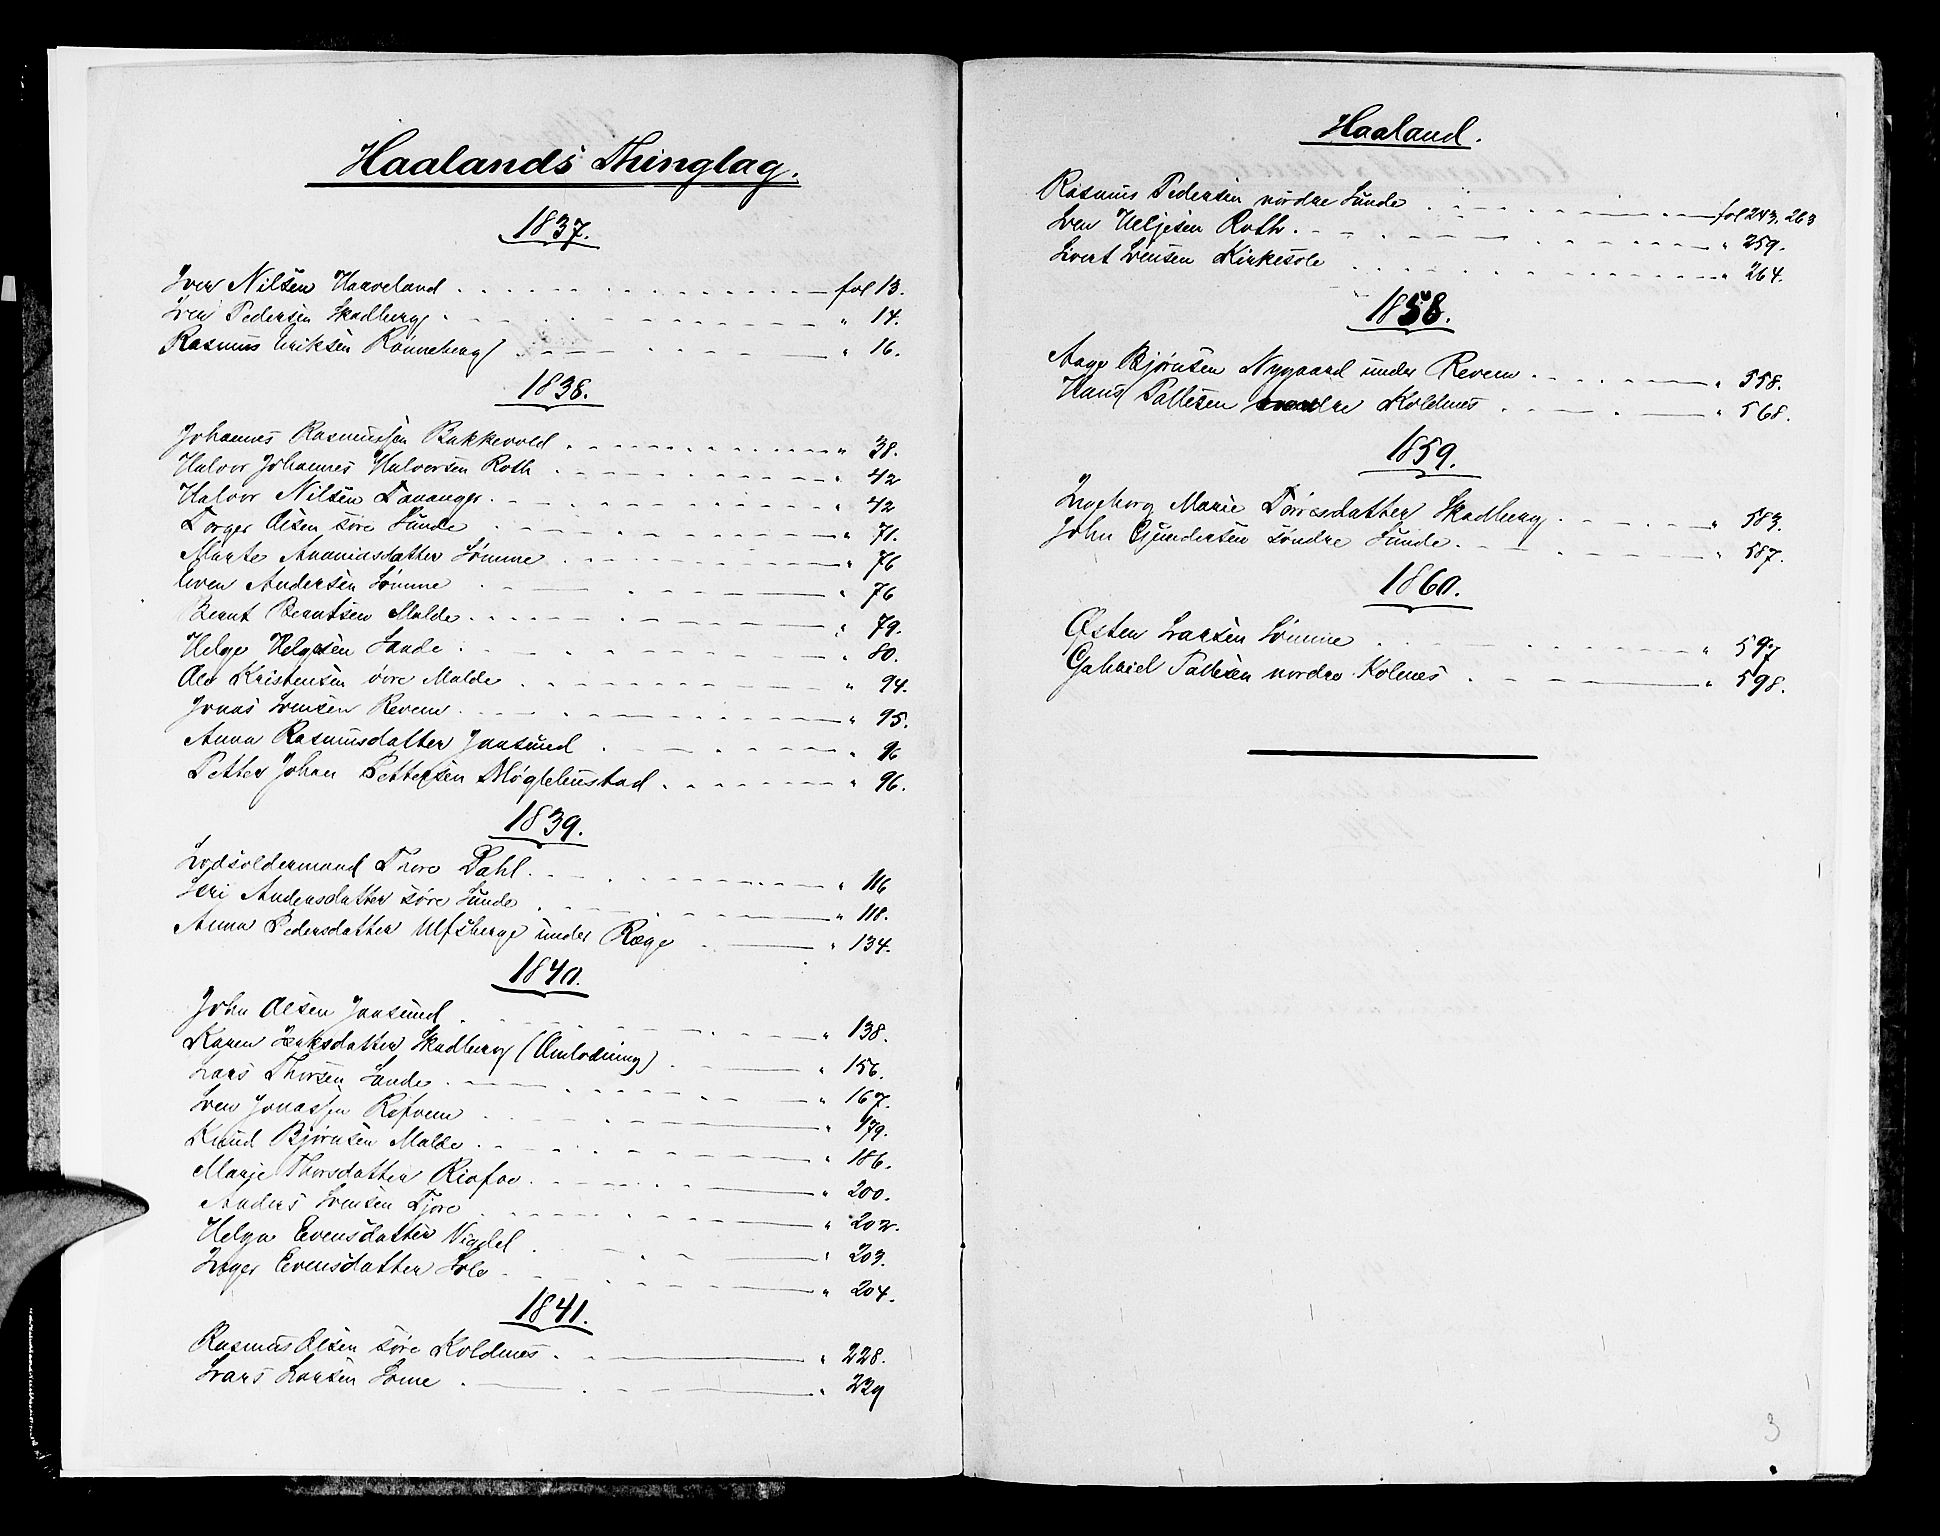 Haalands Thinglag.
1837.
Iver Nilsen Haaveland fol 13.
Sven Pedersen Skadberg " 14.
Rasmus Eriksen Rønneberg " 16.
1838.
Johannes Rasmussen Bakkevold " 38.
Halvor Johannes Halvorsen Roth " 42
Halvor Nilsen Tananger " 42
Torger Olsen søre Sunde " 71.
Marte Ananiasdatter Sømme " 76
Even Andersen Sømme " 76
Bernt Berntsen Malde " 79.
Helge Helgesen Sande " 80.
Ole Kristensen øvre Malde " 94.
Jonas Svensen Revem " 95.
Anna Rasmusdatter Jaasund " 96
Petter Johan Pettersen Møglebustad " 96.
1839.
Lodsoldermand Thore Dahl " 116
Siri Andersdatter søre Sunde " 118.
Anna Pedersdatter Ulfsberge under Ræge " 134.
1840.
John Olsen Jaasund " 138.
Karen Isaksdatter Skadberg (Omlodning) " 156.
Lars Thorsen Sande " 167.
Sven Jonassen Refvem " 179.
Knud Bjørnsen Malde " 186.
Marje Thorsdatter Risfoe " 200.
Anders Svensen Tjore " 202.
Helga Evensdatter Vigdel " 203.
Inger Evensdatter Sole " 204.
1841.
Rasmus Olsen søre Koldnes " 228.
Lars Larsen Some " 239
Haaland.
Rasmus Pedersen nordre Sunde fol 243. 263
Sven Heljesen Roth " 259.
Sivert Svensen Kirkesole " 264.
1858.
Aage Bjørnsen Nygaard under Revem " 558.
Hans Pallesen nordre Koldnes " 568.
1859.
Ingeborg Marie Torresdatter Skadberg " 583.
John Gundersen søndre Sunde " 587.
1860.
Østen Larsen Sømme " 597
Gabriel Pallesen nordre Kolnes " 598.
3